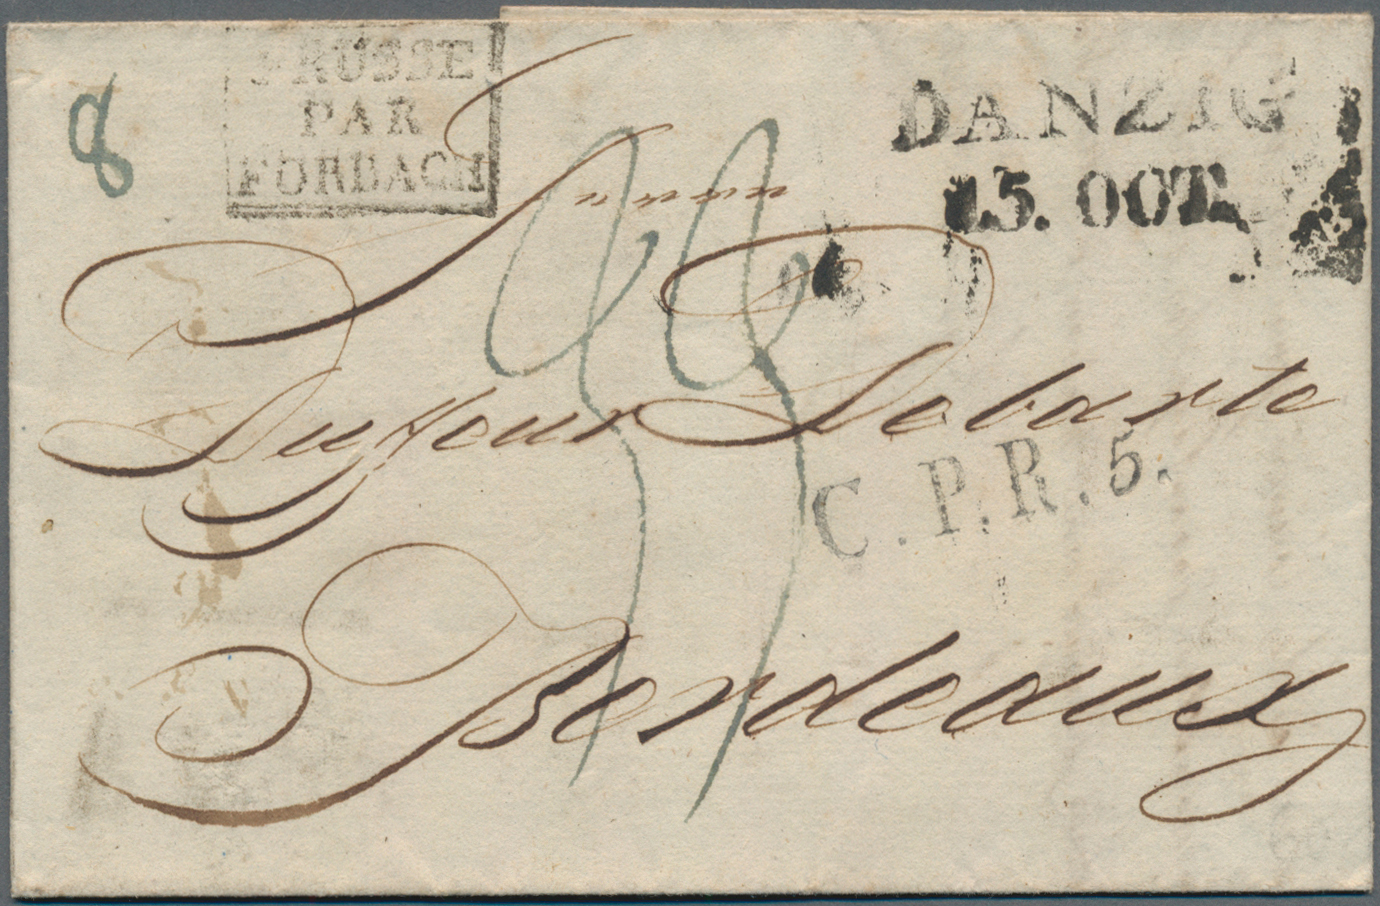 8
PRUSSE
PAR
FORBACH
DANZIG
15. OCT.
Dufour Debarte
C.P.R.5.
Bordeaux